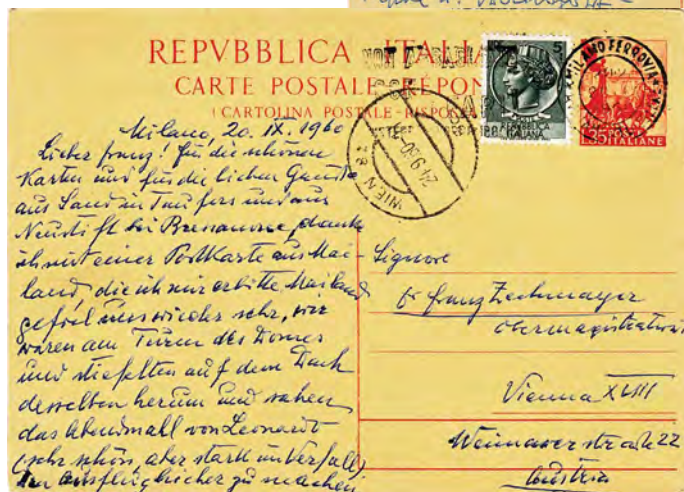 REPVBBLICA ITALIA
CARTE POSTALE-RÉPON
(CARTOLINA POSTALE-RISPOS
5
MILANO FERROVIA
REPUBBLICA
ITALIANA
ITALIANE
WIEN
24.9.60
18
Milano, 20. IX. 1960
Lieber Franz! Für die schönen
Karten und für die lieben Grüße
aus Sand in Taufers und aus
Neustift bei Bressanone, danke
ich mit einer Postkarte aus Mai-
land, die ich mir erbitte Mailand
gefiel uns wieder sehr, wir
waren am Turm des Domes
und stiefelten auf dem Dach
desselben herum und sahen
das Abendmall von Leonardo
(sehr schön, aber stark im Verfall)
zu machen
Signore
Dr Franz Zechmayer
Obermagistratsrat
Vienna XVIII
Weimarerstraße 22
Austria